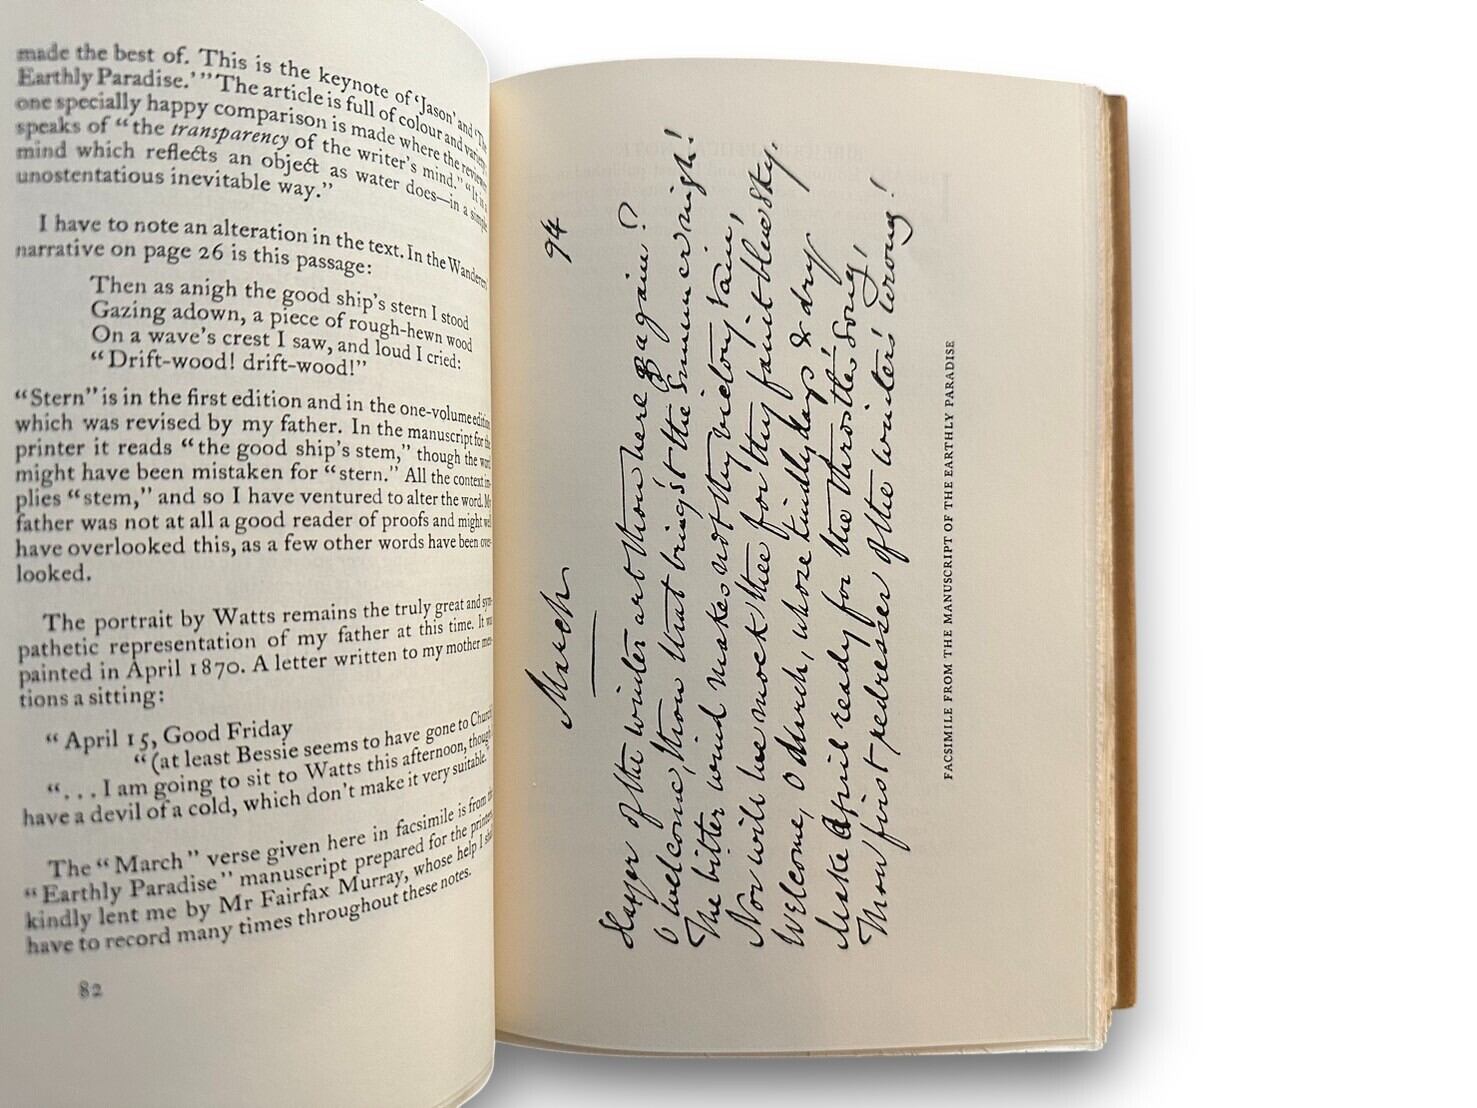 made the best of. This is the keynote of 'Jason' and 'The
Earthly Paradise.'" The article is full of colour and variety;
one specially happy comparison is made where the reviewer
speaks of "the transparency of the writer's mind." "It is a
mind which reflects an object as water does—in a simple
unostentatious inevitable way."
I have to note an alteration in the text. In the Wanderers
narrative on page 26 is this passage:
Then as anigh the good ship's stern I stood
Gazing adown, a piece of rough-hewn wood
On a wave's crest I saw, and loud I cried:
"Drift-wood! drift-wood!"
"Stern" is in the first edition and in the one-volume edition
which was revised by my father. In the manuscript for the
printer it reads "the good ship's stem," though the word
might have been mistaken for "stern." All the context im-
plies "stem," and so I have ventured to alter the word. My
father was not at all a good reader of proofs and might well
have overlooked this, as a few other words have been over-
looked.
The portrait by Watts remains the truly great and sym-
pathetic representation of my father at this time. It was
painted in April 1870. A letter written to my mother men-
tions a sitting:
"April 15, Good Friday
"(at least Bessie seems to have gone to Church
"... I am going to sit to Watts this afternoon, though I
have a devil of a cold, which don't make it very suitable."
The "March" verse given here in facsimile is from the
"Earthly Paradise" manuscript prepared for the printers,
kindly lent me by Mr Fairfax Murray, whose help I shall
have to record many times throughout these notes.
82
March 94
Slayer of the winter art thou here again?
O welcome, thou that bring'st the summer nigh!
The bitter wind makes not thy victory vain,
Nor will we mock thee for thy faint blue sky.
Welcome, O March, whose kindly days & dry
Make April ready for the throstle's song,
Thou first redresser of the winter's wrong!
FACSIMILE FROM THE MANUSCRIPT OF THE EARTHLY PARADISE